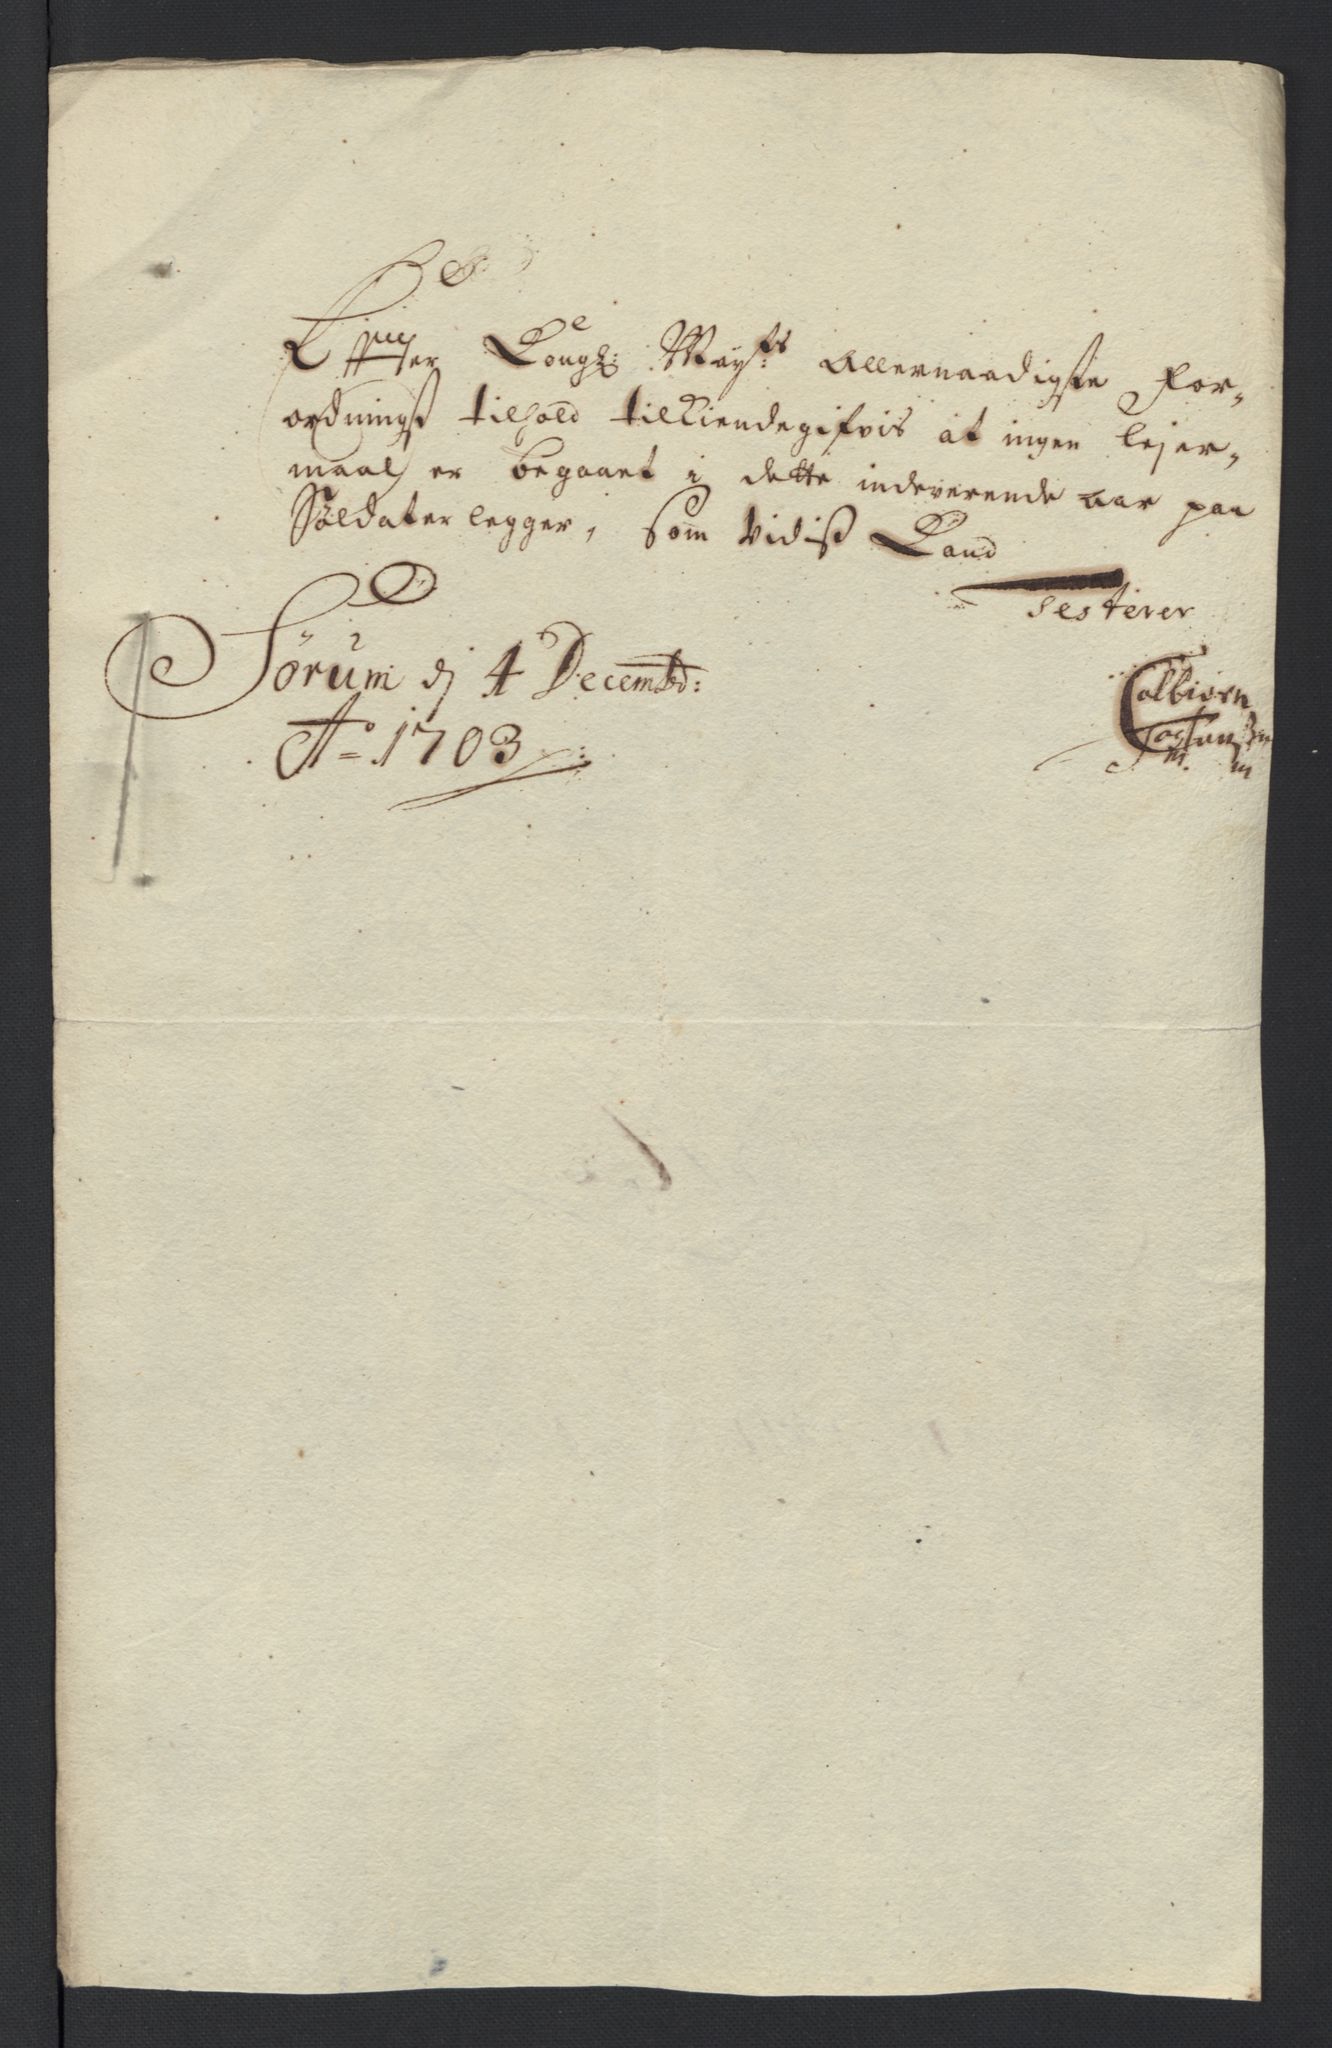 Effter Kongl: Mayst: Allernaadigste For-
ordningß tilhold tilkiendegifvis at ingen lejer-
maal er begaaet i dette indeverende aar paa
Soldaterlegger, som vidist
testerer
Sørum dj 4 Decemb:
Ao 1703
Colbiørn